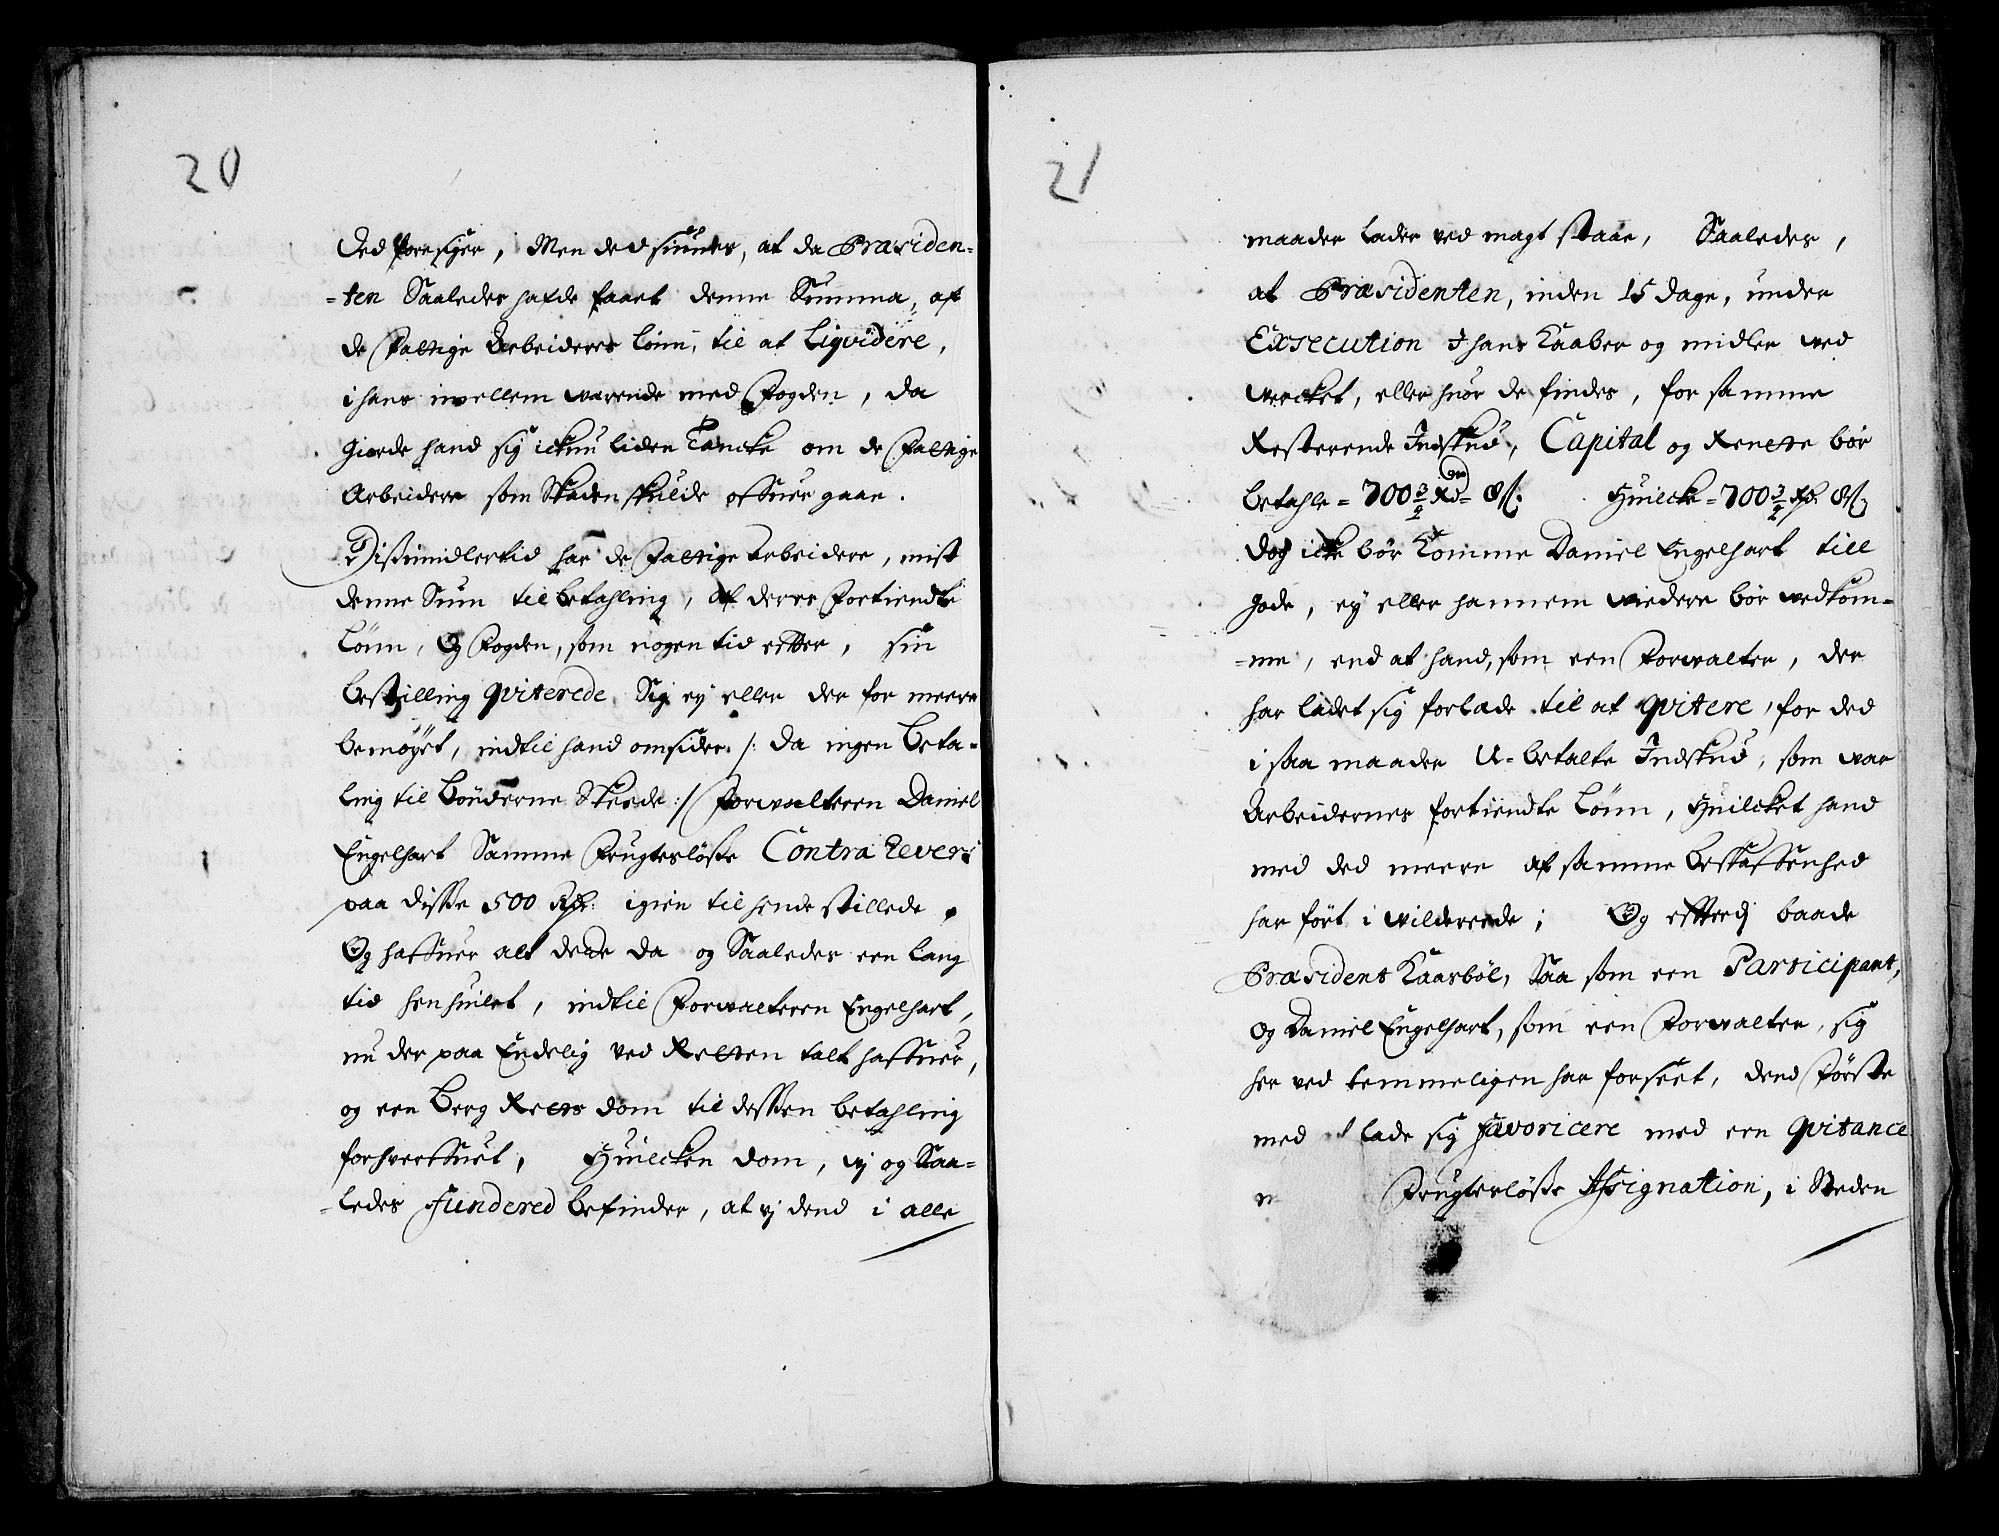 20
Ded foresiger, Men ded siunes, at da Præsiden=
=ten Saaledes hafde faaet denne Summa, af
de Fattige Arbeideres Lönn, til at Liqvidere,
i hans mellem værende med Fogden, da
giorde hand sig ickun liden Tancke om de Fattige
Arbeidere som Skaden skulde offuer gaae.
Dissimidlertid har de Fattige Arbeidere, mist
denne Sum til betahling, af deres Fortiendte
Lönn, Og Fogden, som nogen tid efter, sin
bestilling qviterede Sig ey eller der for meere
bemöyet, indtil hand omsider /: da ingen Beta=
ling til Bönderne Skeede :/ Forvalteren Daniel
Engelhart Samme Frugteslösse Contra Revers
paa disse 500 Rdr: igien tilhende stillede,
Og haffuer alt dette da og Saaledes een lang
tid henhvilet, indtil Forvalteren Engelhart,
nu der paa Endelig ved Retten talt haffuer,
og een Berg Retts dom til dessen betahling
forhverffuet, Huilcken dom, vj og Saa=
=ledes Fundered befinder, at vj dend i alle
21
maader lader ved magt staae, Saaledes,
at Præsidenten, inden 15 dage, under
Exsecution I hans Kaaber og midler ved
Vercket, eller huor de findes, for samme
Resterende Indskud, Capital og Rente bör
betahle = 700 3/2 Rd=
Huilcke = 700 3/2 Rdr
dog icke bör komme Daniel Engelhart till
gode, ey eller hannem viedere bör vedkom=
=me, end at hand, som een Forvalter, der
har ladet sig forlæde til at qvitere, for ded
i saa maader U=betalte Indskud, som var
Arbeidernes fortiendte Lönn, Huilcket hand
med ded meere af samme beskaffenhed
har fört i vilderede; Og efterdj baade
Præsident Kaasböl, Saa som een Participant,
Og Daniel Engelhart, som een Forvalter, sig
her ved temmeligen har forseet, dend Förste
med at lade sig favoricere med een qvitance
Frugteslösse Assignation, i Steden